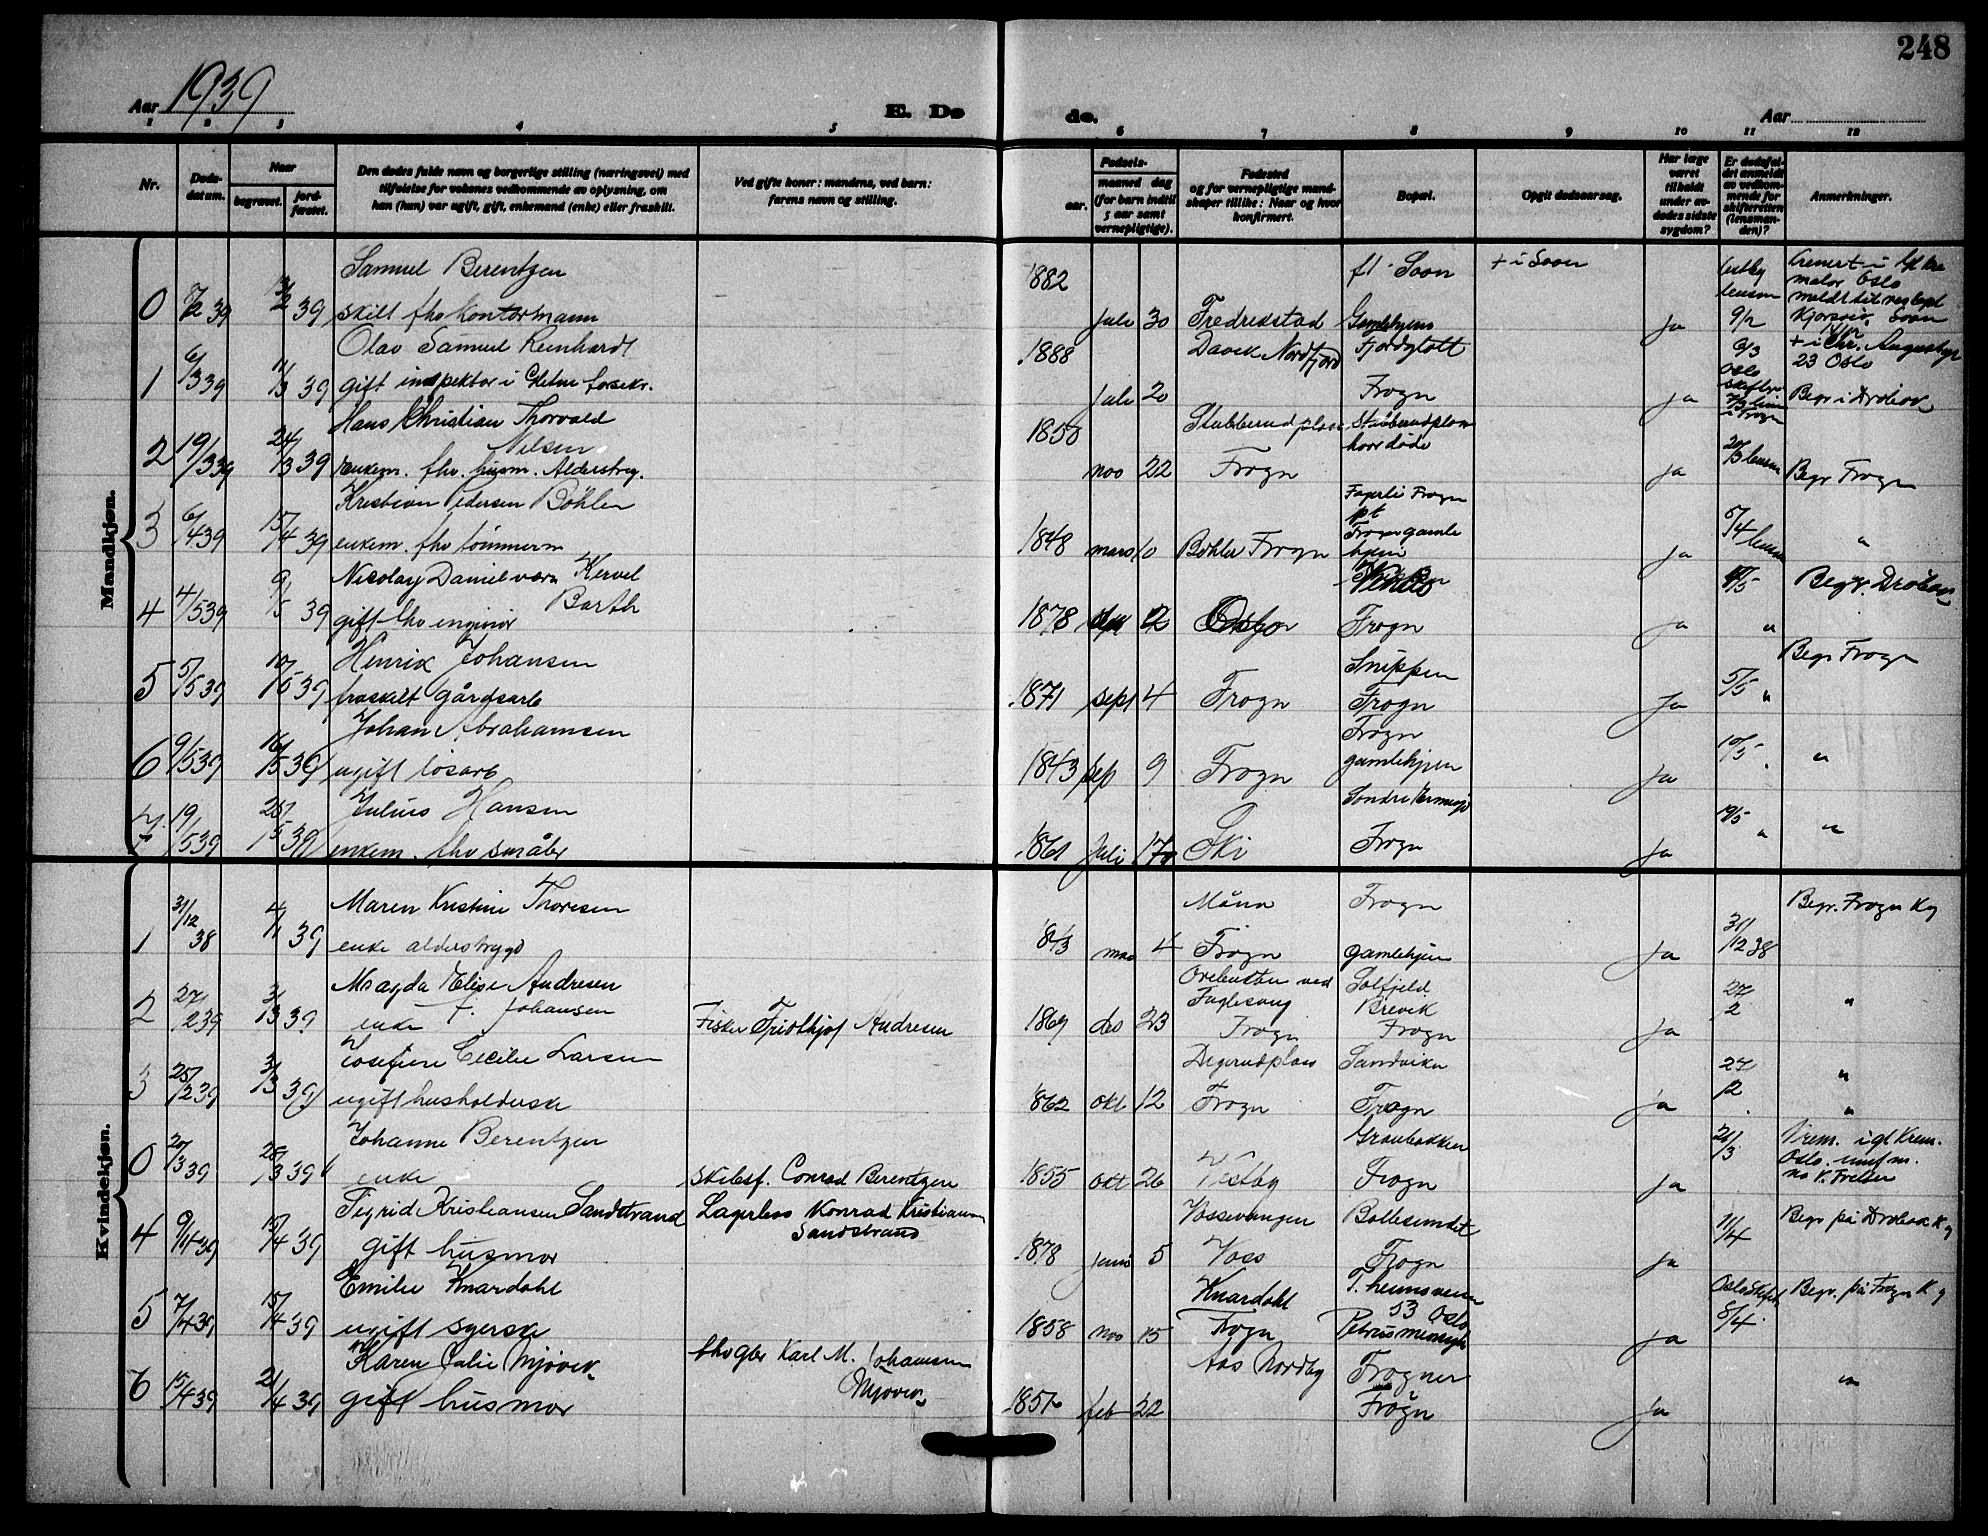 248
Aar 1939
E. Døde.
Aar
1 2 3 4 5 6 7 8 9 10 11 12
Nr.
Døds-
datum.
Naar
begravet.
jord-
fæstet.
Den dødes fulde navn og borgerlige stilling (næringsvei) med
tilføielse for voksnes vedkommende av oplysning, om
han (hun) var ugift, gift, enkemand (enke) eller fraskilt.
Ved gifte koner: mandens, ved barn:
farens navn og stilling.
Fødsels-
aar.
maaned dag
(for barn indtil
5 aar samt
vernepligtige).
Fødested
og for vernepligtige mand-
skaper tillike: Naar og hvor
konfirmert.
Bopæl.
Opgit dødsaarsag.
Har læge
været
tilkaldt
under av-
dødes sidste
sygdom?
Er dødsfal-
det anmeldt
av vedkom-
mende for
skifteretten
(lensman-
den)?
Anmerkninger.
Mandkjøn.
Samuel Berentzen 1882 fl. Soon + i Soon
0 7/2 39 13/2 39 skilt fhv kontormann juli 30 Fredrikstad Gamlehjem Ja 9/2
Olav Samuel Reinhardt 1888 Davik Nordfjord Fjordgløtt + i Chr. Augustsgt
23 Oslo
1 6/3 39 11/3 39 gift inspektør i forsikr. juli 20 Frogn Ja Begr i Drøbak
Hans Christian Thorvald Nilsen 1850 Stubberud plass Stubberudplass
2 19/3 39 24/3 39 Enkem. fhv. husm. Alderstryg. nov 22 Frogn hvor døde Ja 20/3 lensm Begr Frogn
Kristian Pedersen Bøhler Fagerli Frogn
pt
3 6/4 39 15/4 39 enkem. fhv tømmerm 1848 mars 10 Bøhler Frogn Frogn gamlehjem Ja 5/4 lensm "
Nicolay Daniel Kervel Barth
4 4/5 39 9/5 39 gift fhv ingeniør 1878 2 Oslo Frogn Ja 4/5 " Begr. Drøbak
Henrik Johansen Snippen Begr Frogn
5 5/5 39 10/5 39 fraskilt gårdsarb 1871 sept 4 Frogn Frogn Ja 5/5 "
Johan Abrahamsen Frogn
6 9/5 39 16/5 39 ugift løsarb 1843 sep 9 Frogn gamlehjem Ja 10/5 " "
Julius Hansen Søndre
7 19/5 39 25/5 39 enkem. fhv småbr 1861 Juli 17 Ski Frogn Ja 19/5 " "
Kvindekjøn.
Maren Kristine Thoresen Måna Frogn Begr. Frogn Kg
1 31/12 38 4/1 39 enke alderstrygd 1843 mai 4 Frogn gamlehjem Ja 31/12 38
Magda Elise Andresen Orebukten ved Fuglesang Solfjeld Brevik
2 27/2 39 3/3 39 enke f. Johansen Fisker Fridthjof Andresen 1869 des 23 Frogn Frogn Ja 27/2 "
Josefine Cecilie Larsen Degerudplass Sandvika
3 25/2 39 3/3 39 ugift husholderske 1862 okt 12 Frogn Frogn Ja 27/2 "
Johanne Berentzen Gravbakken Krem. i gl Krem.
Oslo.
0 20/3 39 25/3 39 enke skibsf. Conrad Berentzen 1855 okt 26 Vestby Frogn Ja 21/3
Sigrid Kristiansen Sandstrand Lagerbes Konrad Kristiansen Sandstrand Vossevangen Ballesundet Begr på Drøbak Kg
4 9/4 39 15/4 39 gift husmor 1878 juni 5 Voss Frogn Ja 11/4
Emilie Knardahl Knardahl T. heimsveien 53 Oslo Oslo Skifter Begr. på Frogn Kg
5 7/4 39 15/4 39 ugift syerske 1858 nov 15 Frogn Petrus menigh Ja 8/4
Karen Julie Mjøvik fhv gbr Karl M. Johansen Mjøvik Aas Nordby Frogner
6 15/4 39 21/4 39 gift husmor 1851 feb 22 Frogn Ja "